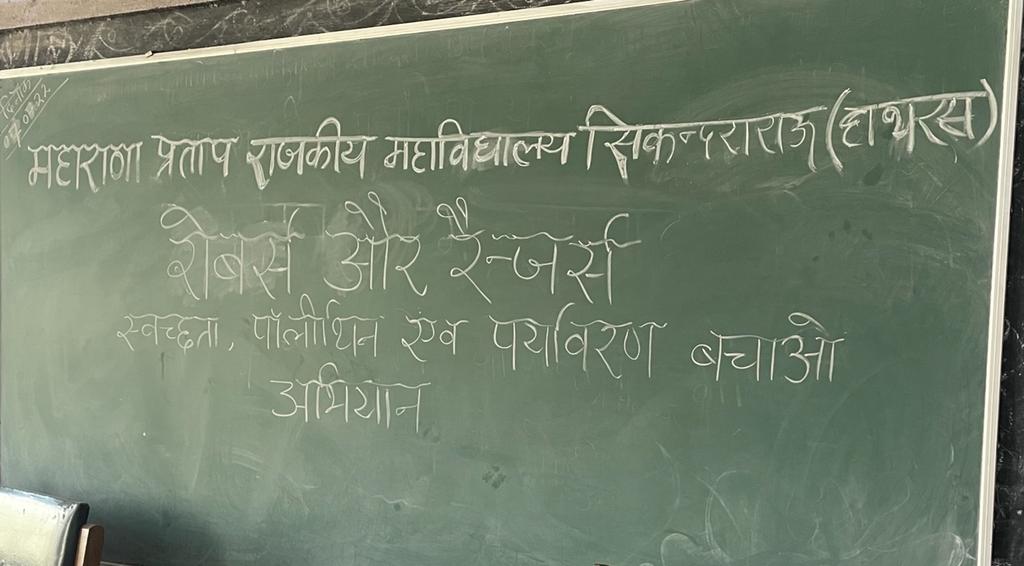 दिनांक
महाराणा प्रताप राजकीय महाविद्यालय सिकन्दराराऊ (हाथरस)
रोवर्स और रैन्जर्स
स्वच्छता, पॉलीथिन एंव पर्यावरण बचाओ
अभियान